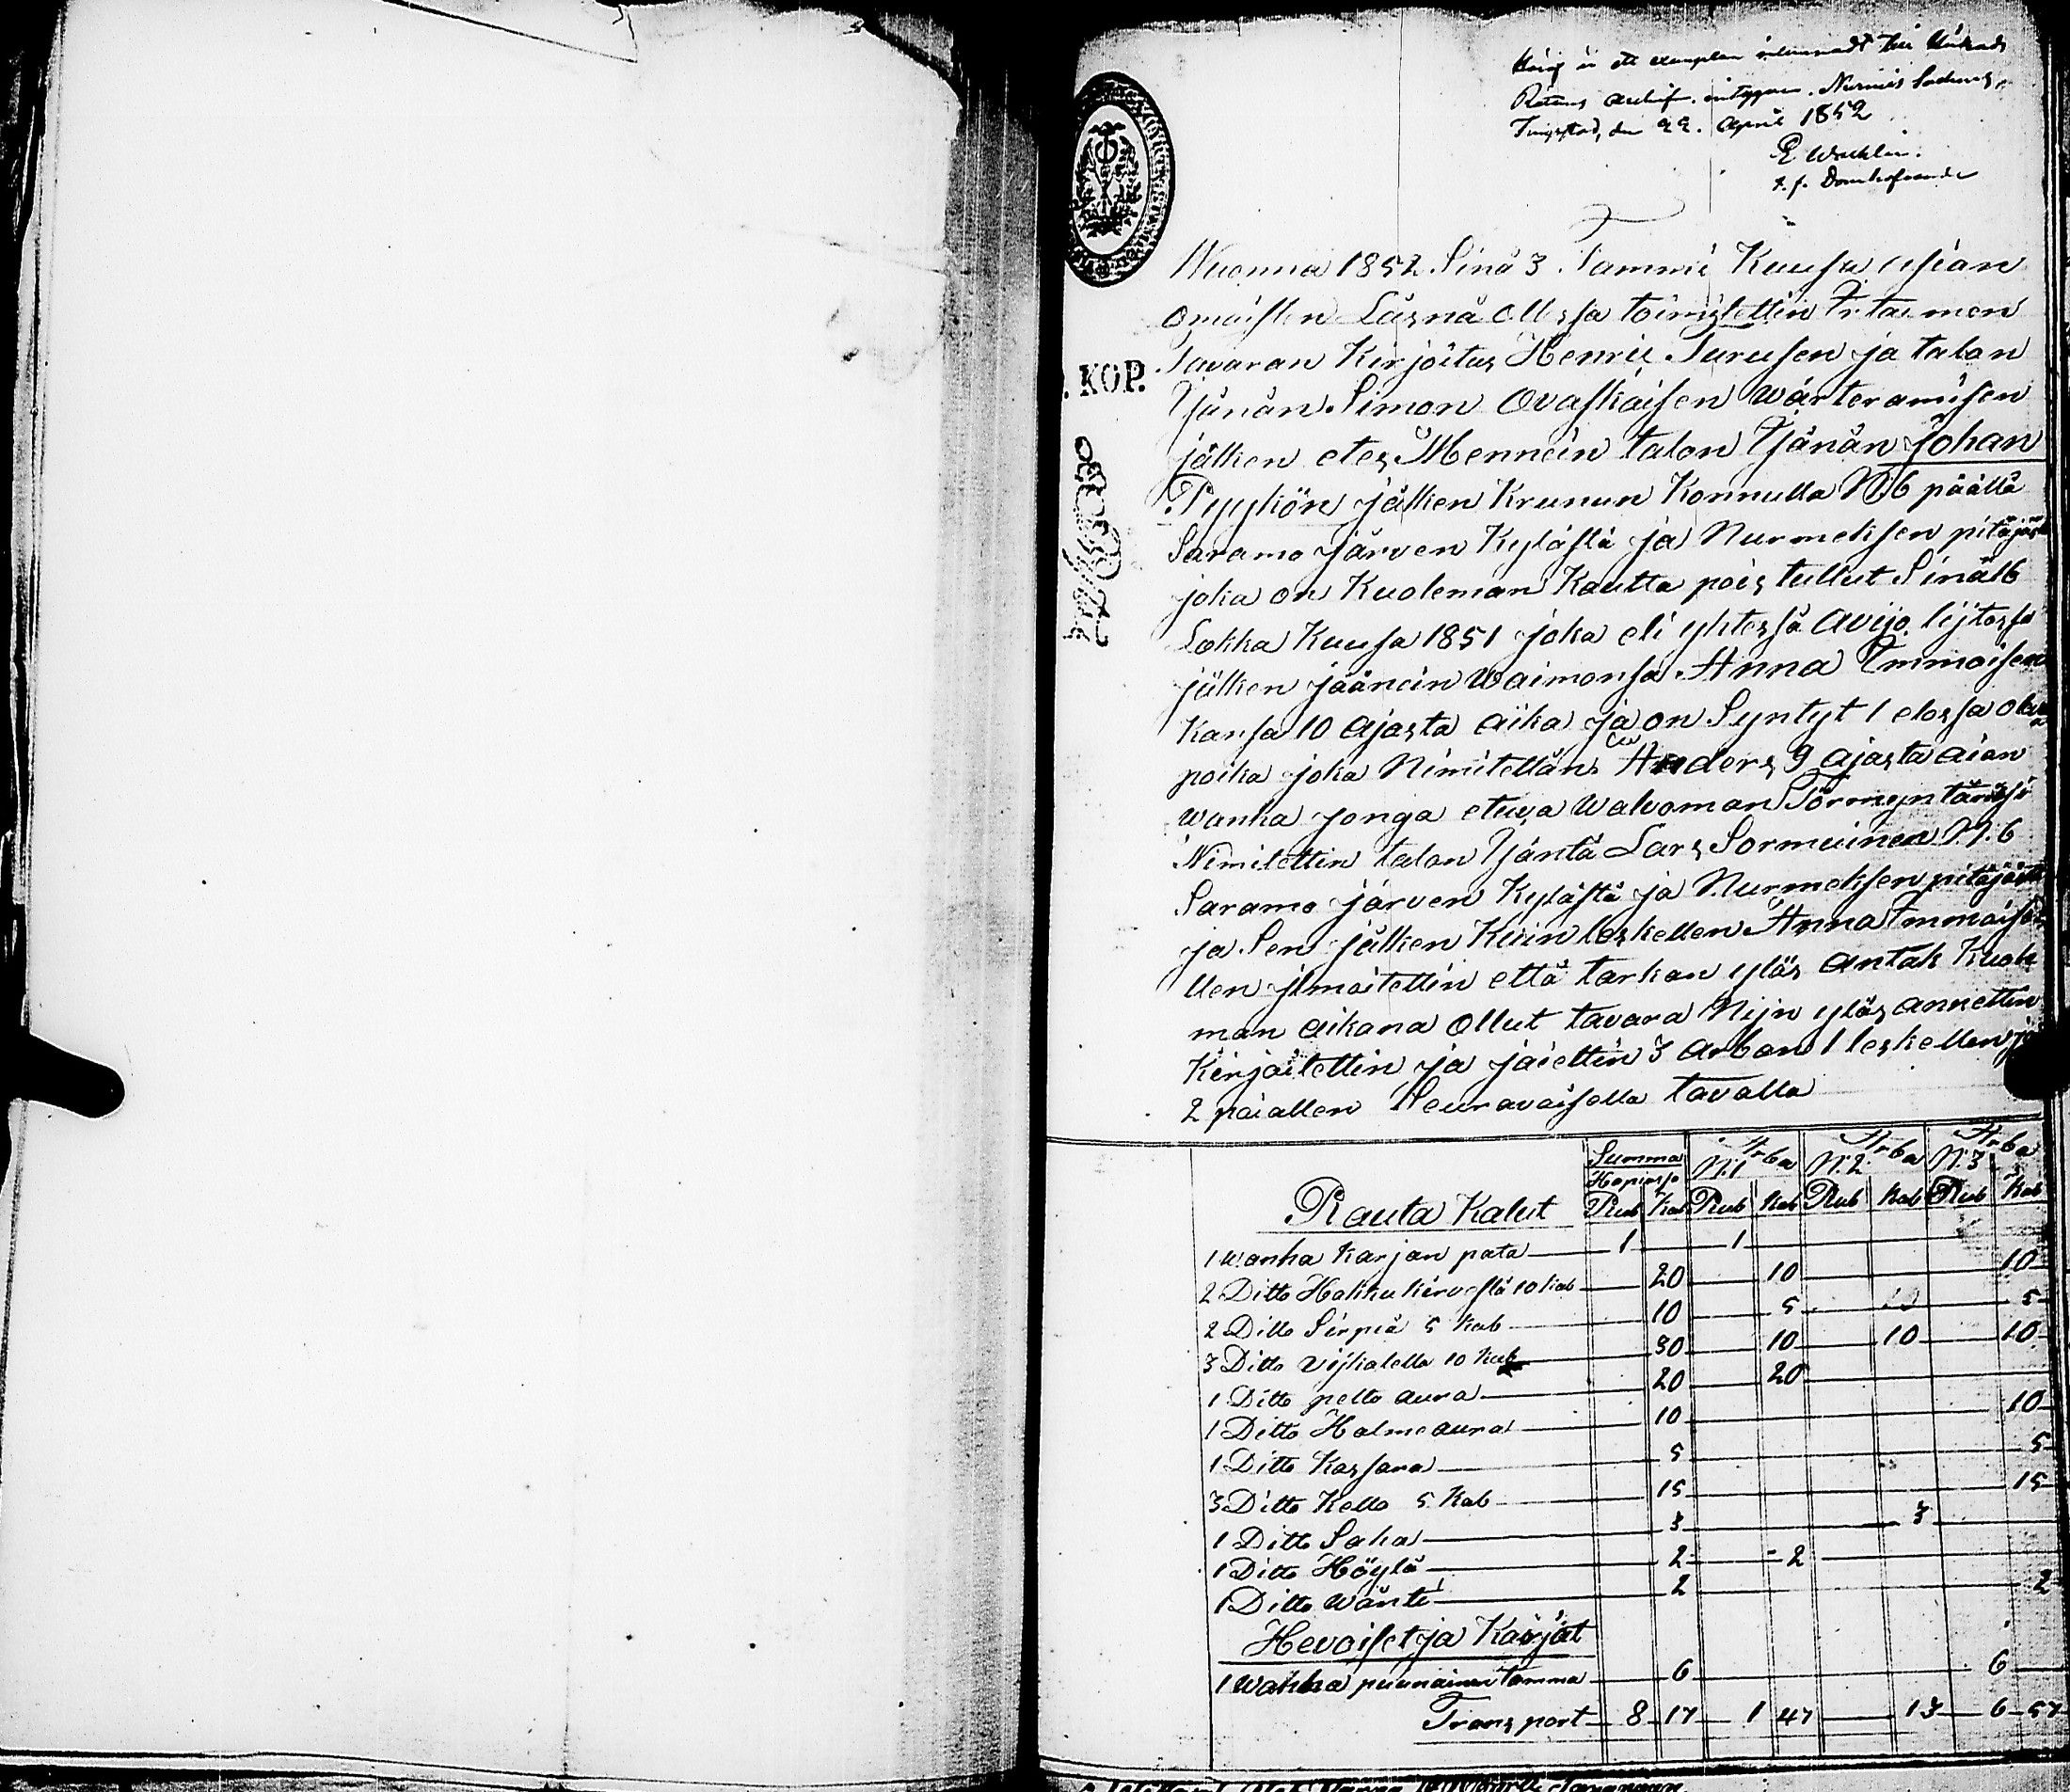 Häraf är ett exemplar inlemnadt till Härads
Rättens Archif. intygar. Nurmis Sockens
Tingsstad, den 22. April 1852
E Wacklin.
t. f. Domhafvande
KOP.
Wuonna 1852 Sinä 3 Tammi Kuusa asian
omaisten Läsnä ollessa toimitettin Irtaimen
Tavaran Kirjoitus Henric Turusen ja talon
Isänän Simon Ovaskaisen wärteramisen
jälken etes Mennein talon Isänän Johan
Pyykön jälken Krunun Konnulla N:6 päällä
Saramo järven Kylästä ja Nurmeksen pitäjästä
joka on Kuoleman Kautta pois tullut Sinä 16
Lokka Kuusa 1851 joka eli yhtessä Avijo lijtossa
jälken jäänein Waimonsa Anna Immoisen
Kansa 10 Ajasta aika ja on Syntyt 1 elossa oleva
poika joka Nimitetän Anders 9 ajasta aian
wanha jonga etuva Walvoman Törmyntärixi
Nimitettin talon Isäntä Lars Sormuinen N:6
Saramo järven Kylästä ja Nurmeksen pitäjästä
ja Sen jälken Kuin leskellen Anna Immoisel
llen jlmoitettin että tarkan ylös antak Kuole
man aikana ollut tavara Nijn ylös annettin
Kirjoitettin ja jaiettin 3 Arbaan 1 leskellen ja
2 poiallen Seuravaisella tavalla
Summa Hopiassa Arba N:1 Arba N:2 Arba N:3
Rauta Kalut Rub Kob Rub Kob Rub Kob Rub Kob
1 Wanha Karjan pata 1 1
2 Ditto Hakku kirvestä 10 Kob 20 10 10
2 Ditto Sirpiä 5 Kob 10 5 5
3 Ditto Vijkatetta 10 Kob 30 10 10 10
1 Ditto pelto aura 20 20
1 Ditto Halme aura 10 10
1 Ditto Kassara 5 5
3 Ditto Kello 5 Kob 15 15
1 Ditto Saha 3 3
1 Ditto Höylä 2 2
1 Ditto Wänti 2 2
Hevoiset ja Karjat
1 Wanha puunainen tamma 6 6
Transport 8 17 1 47 13 6 57